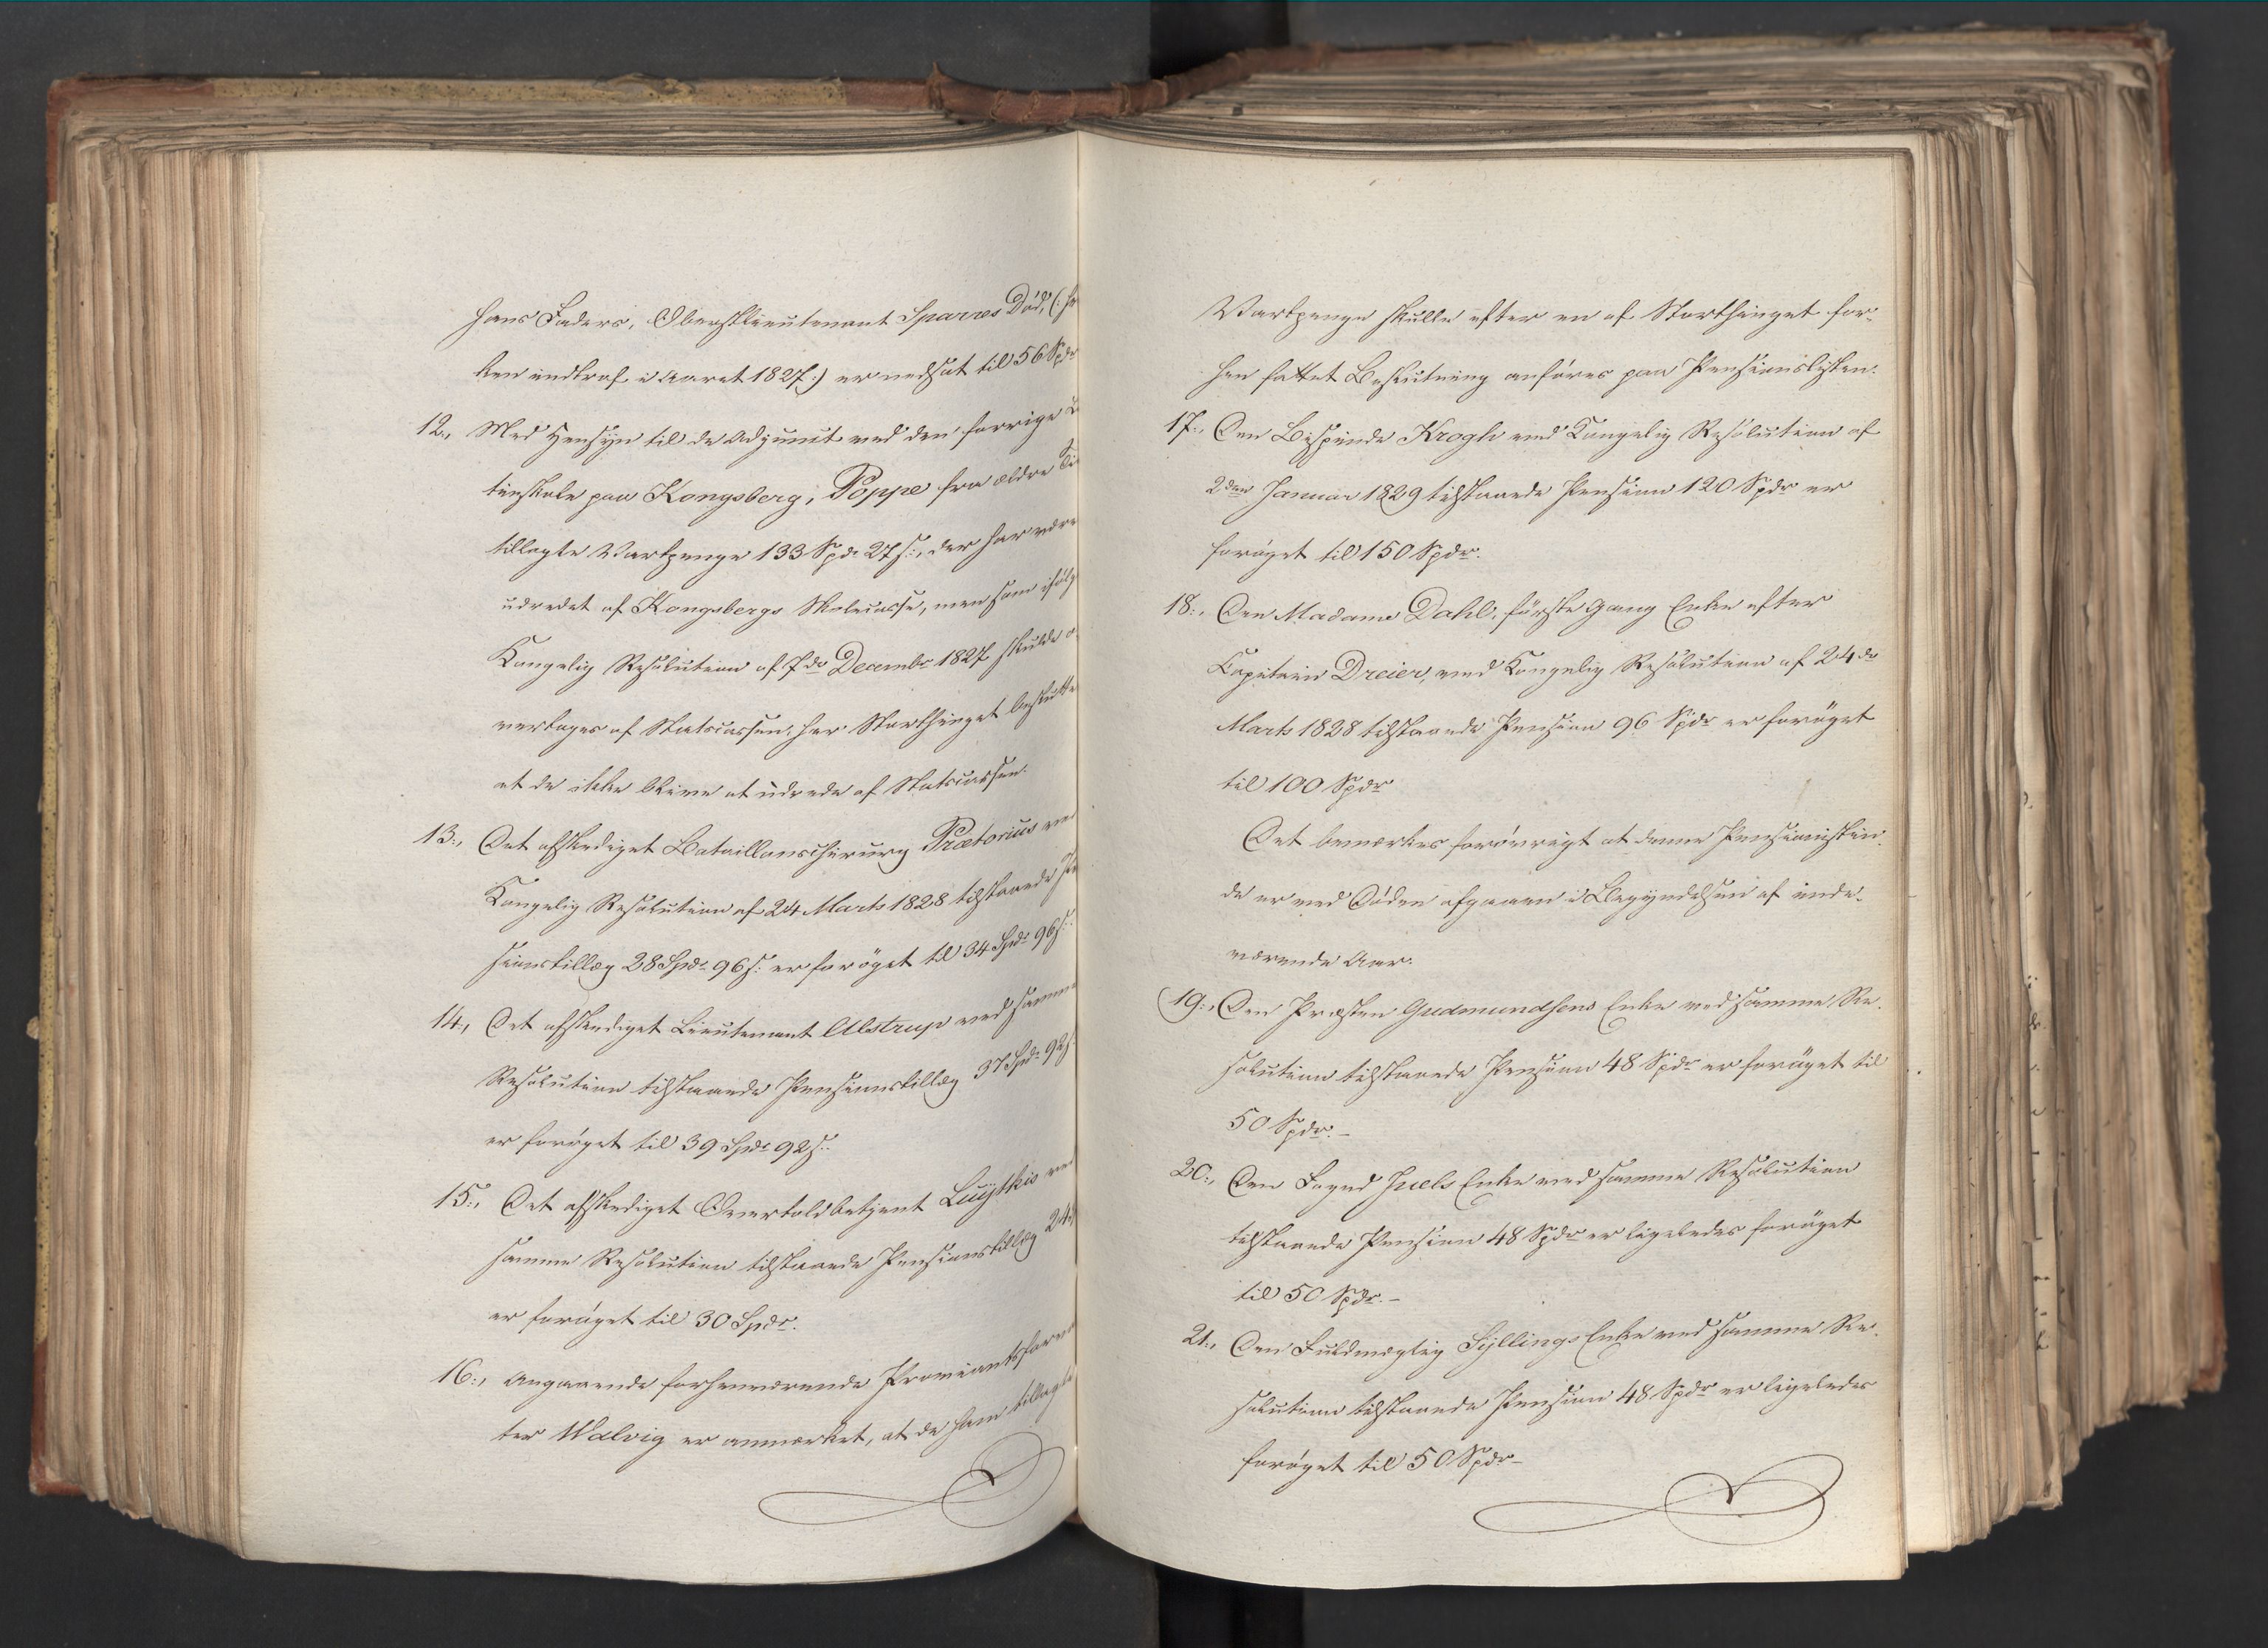 hans Faders, Oberstlieutenant Sparres Död, (: h
ken indtraf i Aaret 1827:) er nedsat til 56 Spdr
12., Med Hensyn til de Adjunct ved den forrige
tinskole paa Kongsberg, Poppe fra ældre Ti
tillagte Vartpenge 133 Spdr 27 s:, der har være
udredet af Kongsbergs Skolecasse, men som ifølg
Kongelig Resolution af 7de Decembr 1827 skulde o
vertages af Statscassen, har Storthinget beslutte
at de ikke blive at udrede af Statscassen.
13., Det afskediget Bataillonschirurg Prætorius ved
Kongelig Resolution af 24 Marts 1828 tilstaaede Pen
sionstillæg 28 Spdr 96 s: er forøget til 34 Spdr 96 s:
14, Det afskediget Lieutenant Alstrup ved samme
Resolution tilstaaede Pensionstillæg 37 Spdr 92 s.
er forøget til 39 Spdr 92 s.
15., Det afskediget Overtoldbetjent Luytkis ved
samme Resolution tilstaaede Pensionstillæg 24
er forøget til 30 Spdr.
16., Angaaende forhenværende Proviantsforval
ter Walvig er anmærket, at de ham tillagte
Vartpenge skulle efter en af Storthinget for-
hen fattet Beslutning anføres paa Pensionslisten.
17., Den Bispinde Krogh ved Kongelig Resolution af
2den Januar 1829 tilstaaede Pension 120 Spdr er
forøget til 150 Spdr.
18., Den Madame Dahl, første Gang Enke efter
Capitain Dreier, ved Kongelig Resolution af 24de
Marts 1828 tilstaaede Pension 96 Spdr er forøget
til 100 Spdr
Det bemærkes forøvrigt at denne Pensionistin-
de er ved Døden afgaaen i Begyndelsen af inde-
værende Aar.
19., Den Præsten Gudmundsens Enke ved samme Re-
solution tilstaaede Pension 48 Spdr er forøget til
50 Spdr.-
20., Den Foged Juels Enke ved samme Resolution
tilstaaede Pension 48 Spdr er ligeledes forøget
til 50 Spdr.-
21., Den Fuldmægtig Syllings Enke ved samme Re-
solution tilstaaede Pension 48 Spdr er ligeledes
forøget til 50 Spdr-